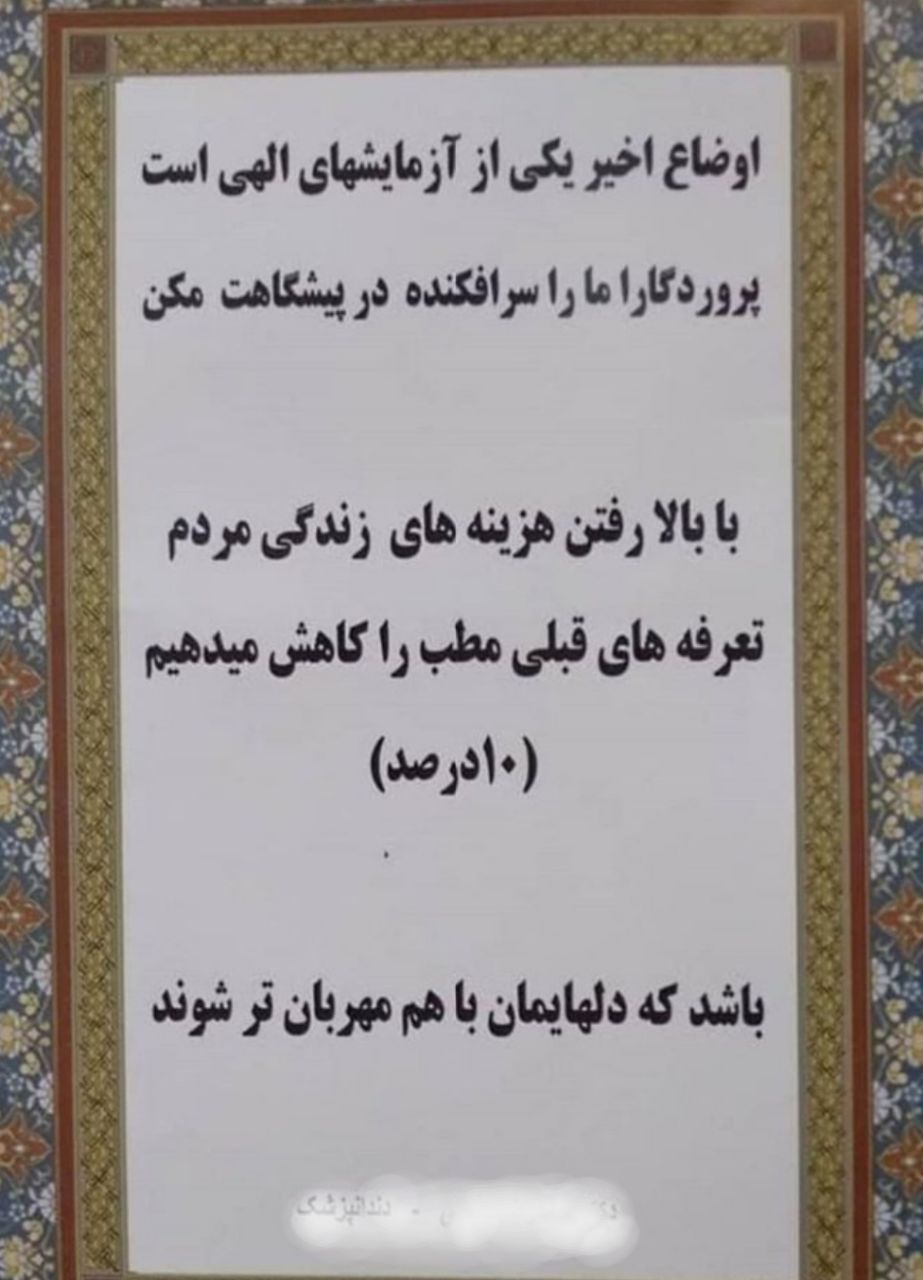 اوضاع اخیر یکی از آزمایشهای الهی است
پروردگارا ما را سرافکنده در پیشگاهت مکن
با بالا رفتن هزینه های زندگی مردم
تعرفه های قبلی مطب را کاهش میدهیم
(۱۰درصد)
باشد که دلهایمان با هم مهربان تر شوند
- دندانپزشک